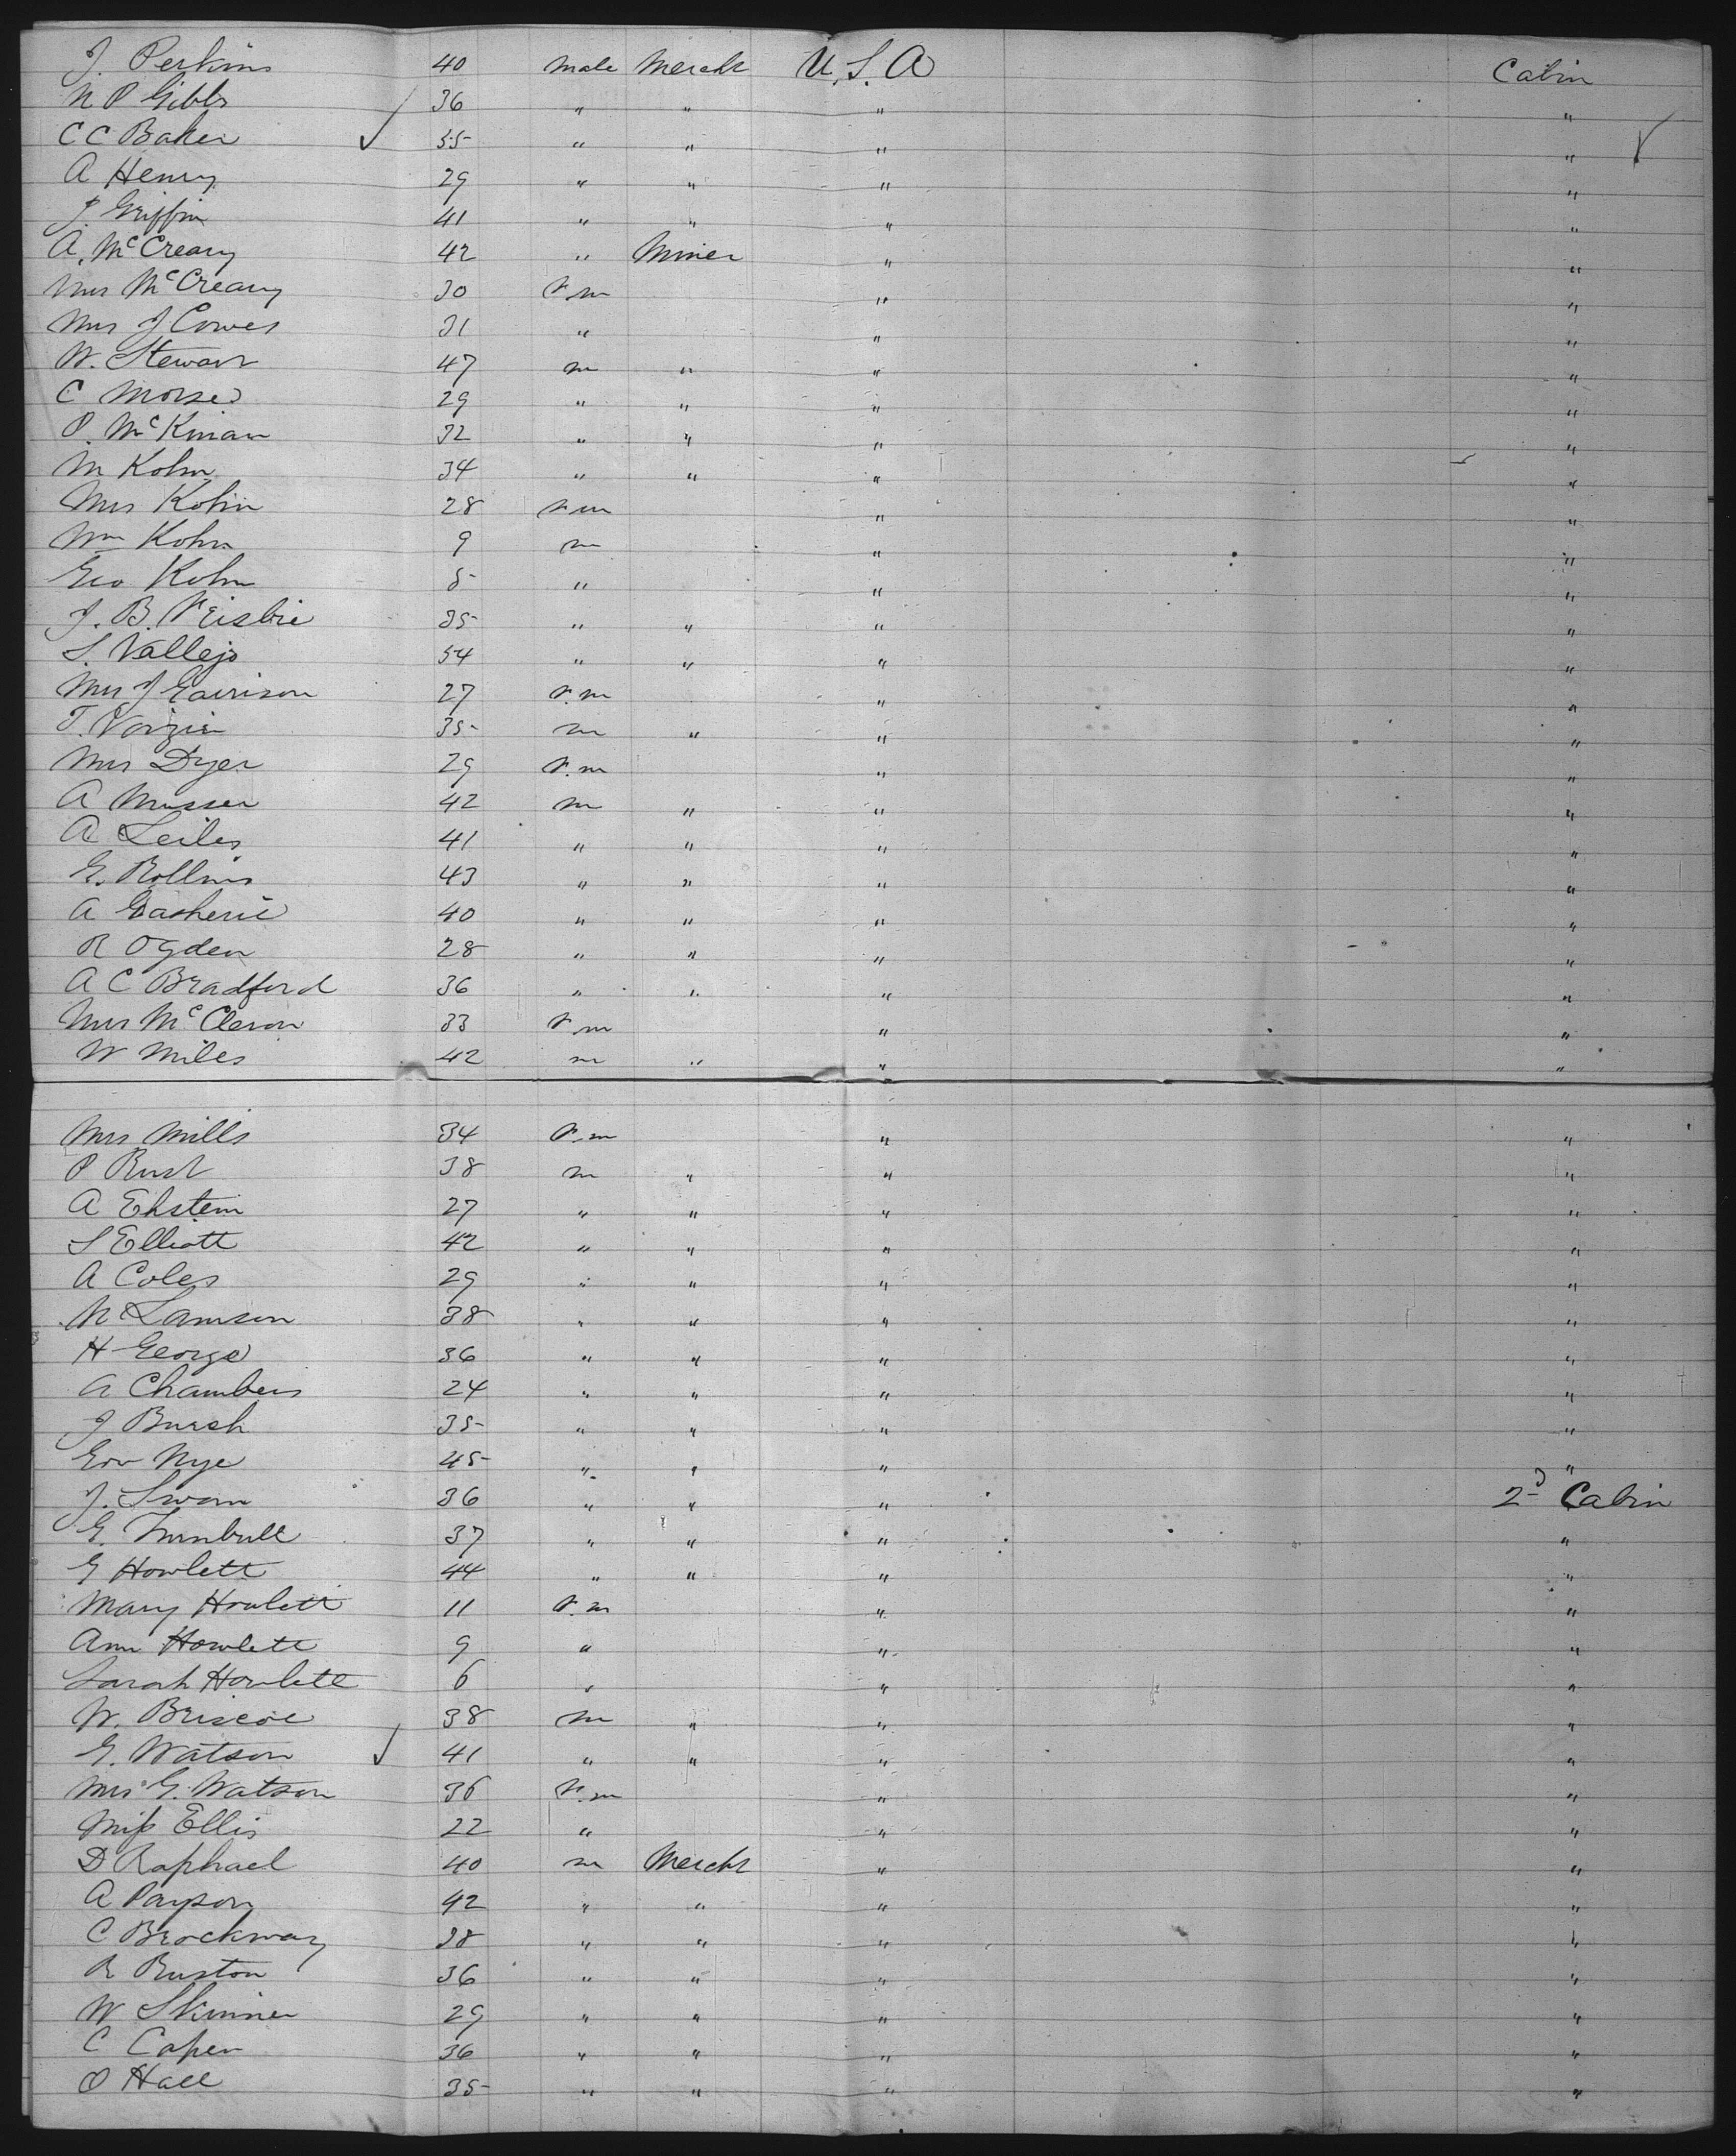 J. Perkins 40 male Mercht U.S.A Cabin
N P Gibbs 36 " " " "
C C Baker 35 " " " "
A Henry 29 " " " "
J. Griffin 41 " " " "
A. McCreary 42 " Miner " "
Mrs McCreary 30 F.m " "
Mrs J Cowes 31 " " "
W. Stewart 47 m " " "
C Morse 29 " " " "
P. McKinan 32 " " " "
M Kohn 34 " " " "
Mrs Kohn 28 F.m " "
Wm Kohn 9 m " "
Geo Kohn 5 " " "
J. B. Frisbie 35 " " " "
S. Vallejo 54 " " " "
Mrs J Garrison 27 F.m " "
T. 35 m " " "
Mrs Dyer 29 F.m " "
A Musser 42 m " " "
A Leiles 41 " " " "
G. Rollins 43 " " " "
A Gasherie 40 " " " "
R Ogden 28 " " " "
A C Bradford 36 " " " "
Mrs McCleron 33 F.m " "
W Miles 42 m " " "
Mrs Mills 34 F.m " "
P Rust 38 m " " "
A Ehstein 27 " " " "
S Elliott 42 " " " "
A Coles 29 " " " "
N Lamson 38 " " " "
H George 36 " " " "
A Chambers 24 " " " "
J Burch 35 " " " "
Gov Nye 45 " " " "
J. Swan 36 " " " 2d Cabin
G. Turnbull 37 " " " "
G Howlett 44 " " " "
Mary Howlett 11 F.m " "
Ann Howlett 9 " " "
Sarah Howlett 6 " " "
W. Briscoe 38 m " " "
G. Watson 41 " " " "
Mrs G. Watson 36 F.m " "
Miss Ellis 22 " " "
D Raphael 40 m Mercht " "
A Payson 42 " " " "
C Brockway 38 " " " "
R Ruston 36 " " " "
W Skinner 29 " " " "
C Capen 36 " " " "
O Hall 35 " " " "